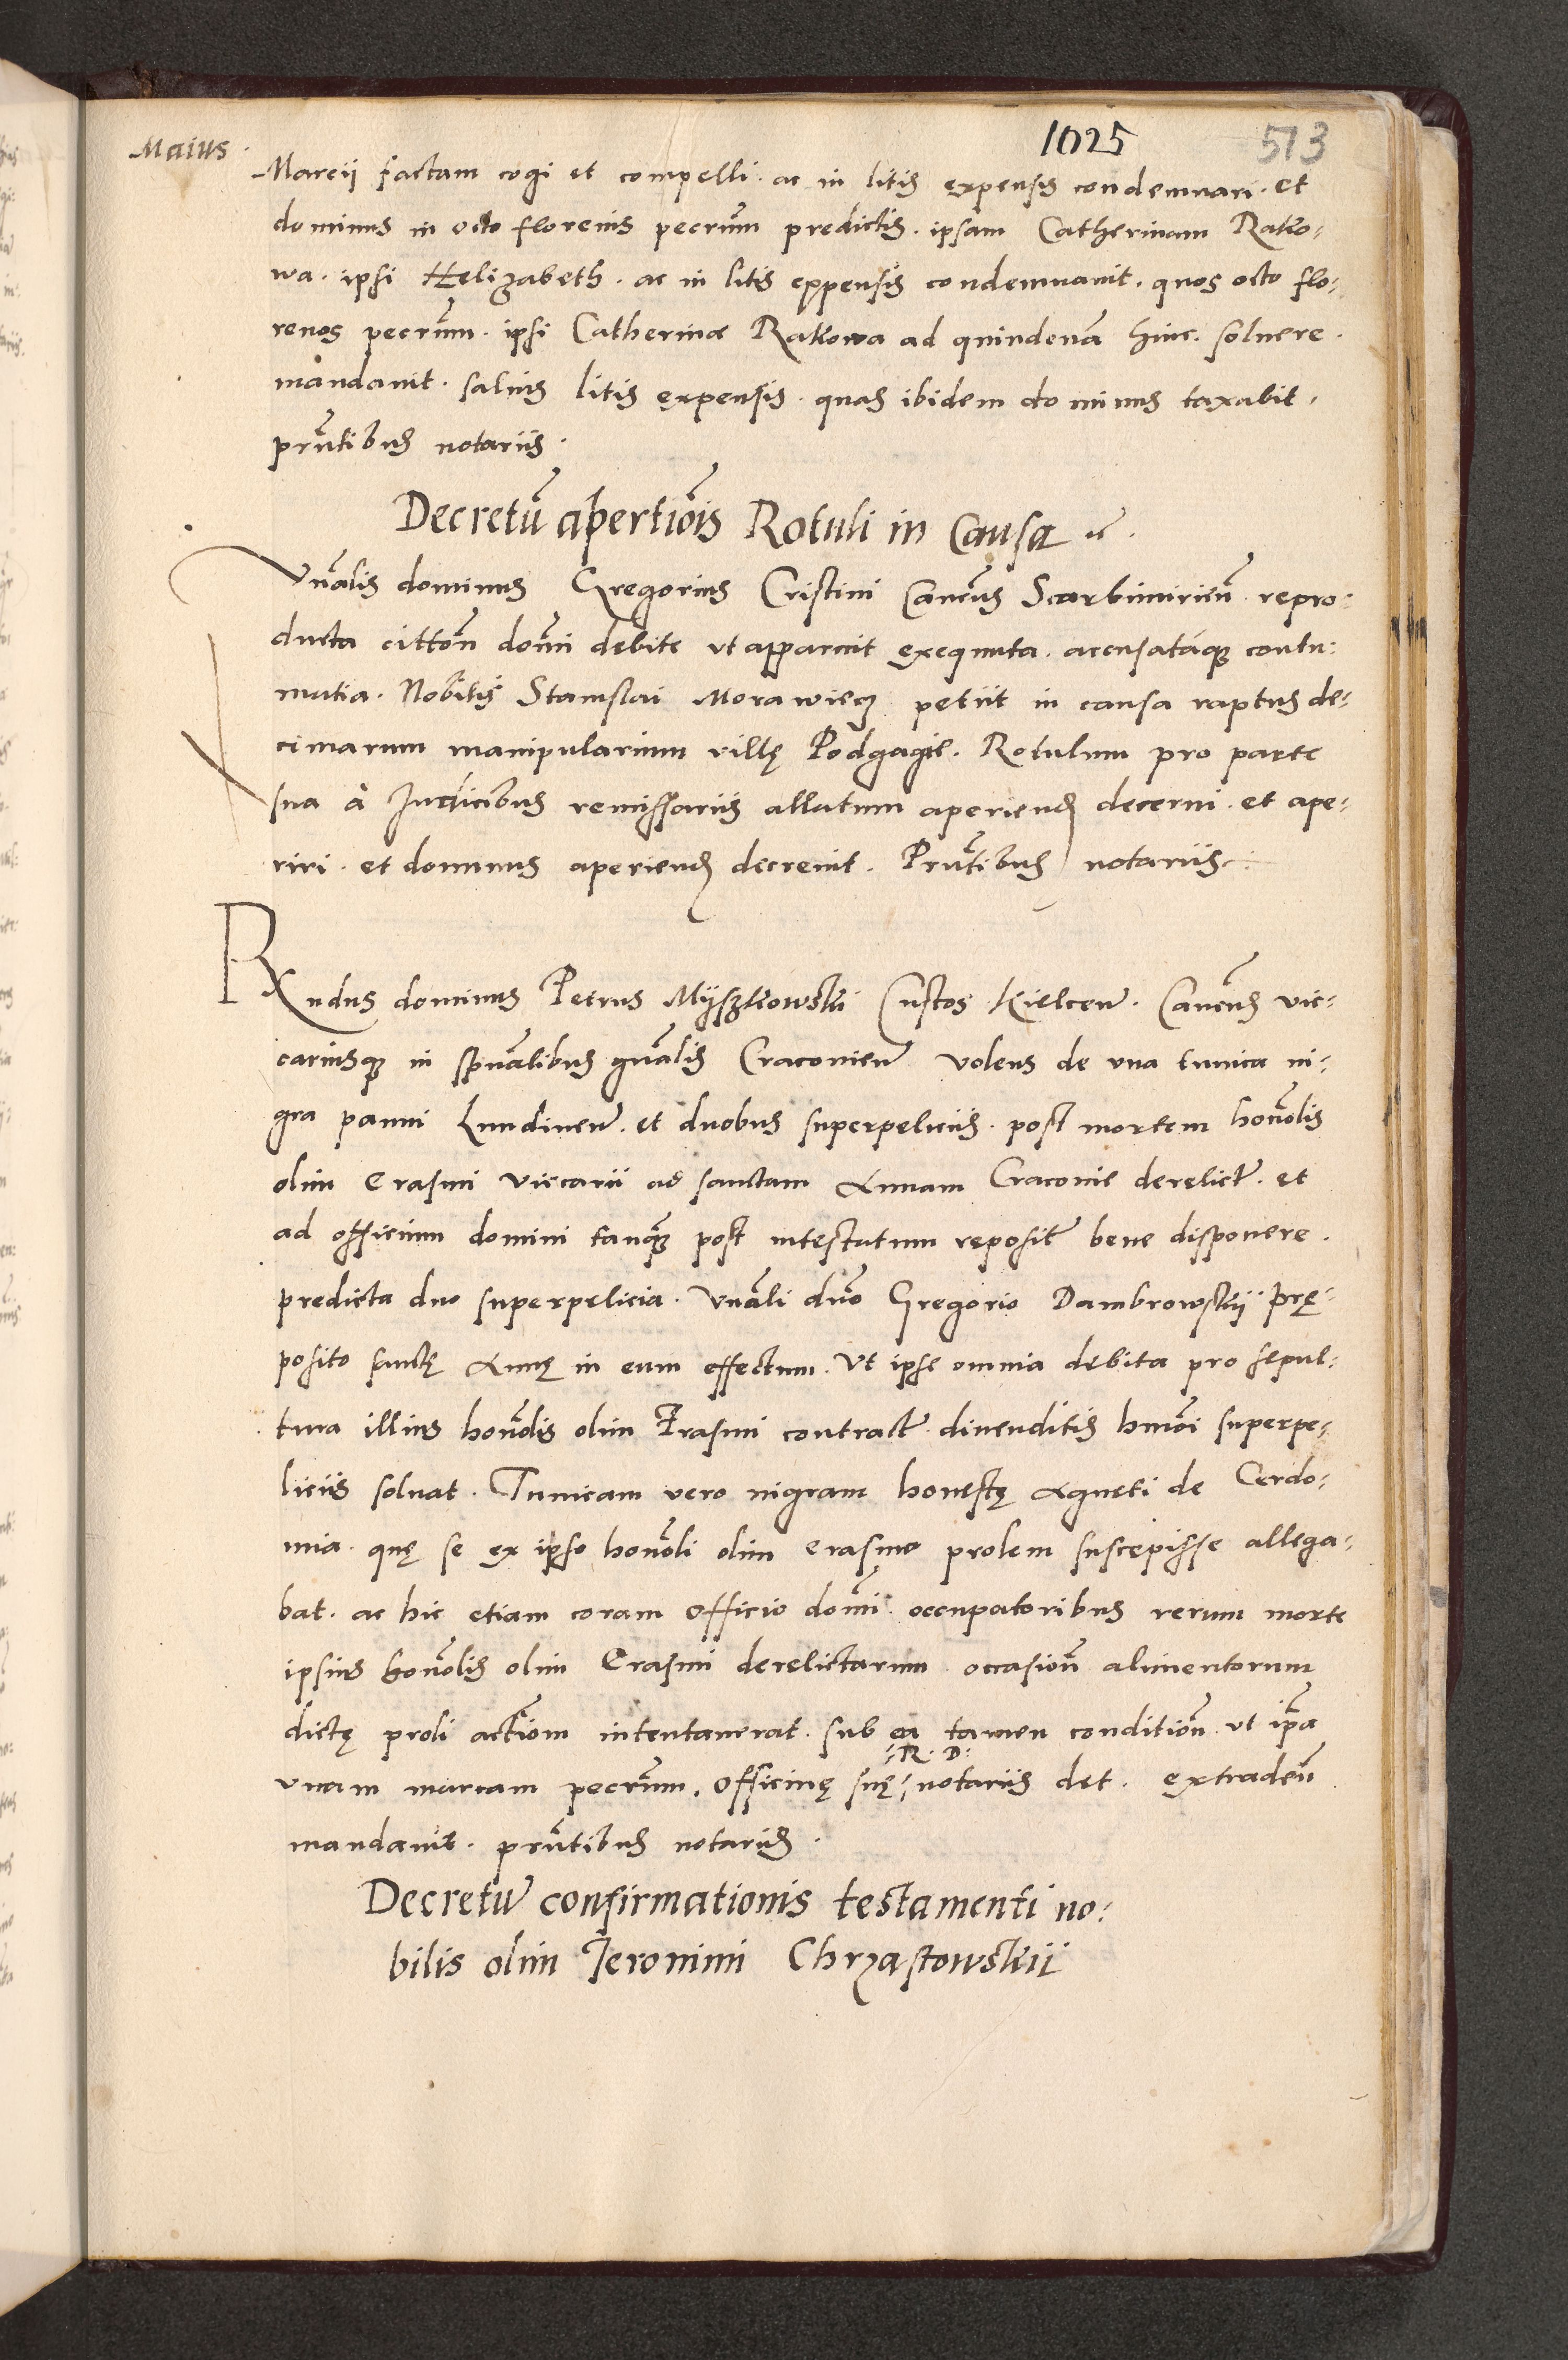 1025 513
Maius
Marcii factam cogi et compelli. ac in litis expensis condemnari. et
dominus in octo florenis pecrum predictis. ipsam Catherinam Rako:
wa. ipsi Helizabeth. ac in litis expensis condemnavit. quos octo flo:
renos pecrum. ipsi Catherinae Rakowa ad quindenam hinc. soluere.
mandauit. saluis litis expensis. quas ibidem dominus taxabit.
pntibus notariis.
Decretū apertiōis Rotuli in Causa
Vnālis dominus Gregorius Cristini Cancus Scarbimirien repro:
ducta cittoñ domi debite ut apparuit exequuta. accusataque contu:
matia. Nobilis Stanislai Morawiecz petiit in causa raptus de:
cimarum manipularium villę Podgagie. Rotulum pro parte
sua â Judicibus remissariis allatum aperiend decerni. et ape:
riri. et dominus aperiend decreuit. Pntibus notariis.
Rxndus dominus Petrus Myszkowskii Custos Kielcen. Cancus vic:
cariusque in spualibus gnalis Cracouien volens de una tunica ni:
gra panni Lundinen. et duobus superpeliciis. post mortem honolis
olim Erasmi viccarii ad sanctam Annam Cracouie derelict. et
ad officium domini tanque post intestatum reposit bene disponere.
predicta duo superpelicia. Vnali dno Gregorio Dambrowskii prę:
posito sanctę Annę in eum effectum. Ut ipse omnia debita pro sepul:
tura illius honolis olim Erasmi contract diuenditis hmoi superpe:
liciis soluat. Tunicam vero nigram honestę Agneti de Cerdo:
nia. quę se ex ipso honoli olim Erasmo prolem suscepisse allega:
bat. ac hic etiam coram officio domi. occupatoribus rerum morte
ipsius honolis olim Erasmi derelictarum occasion alimentorum
dictę proli action intentauerat. sub ea tamen condition ut ipa
:R. D:
unam marcam pecrum. officinę suę notariis det. extraden
mandauit. pntibus notariis.
Decretum confirmationis testamenti no:
bilis olim Jeronimi Chrzastowskii